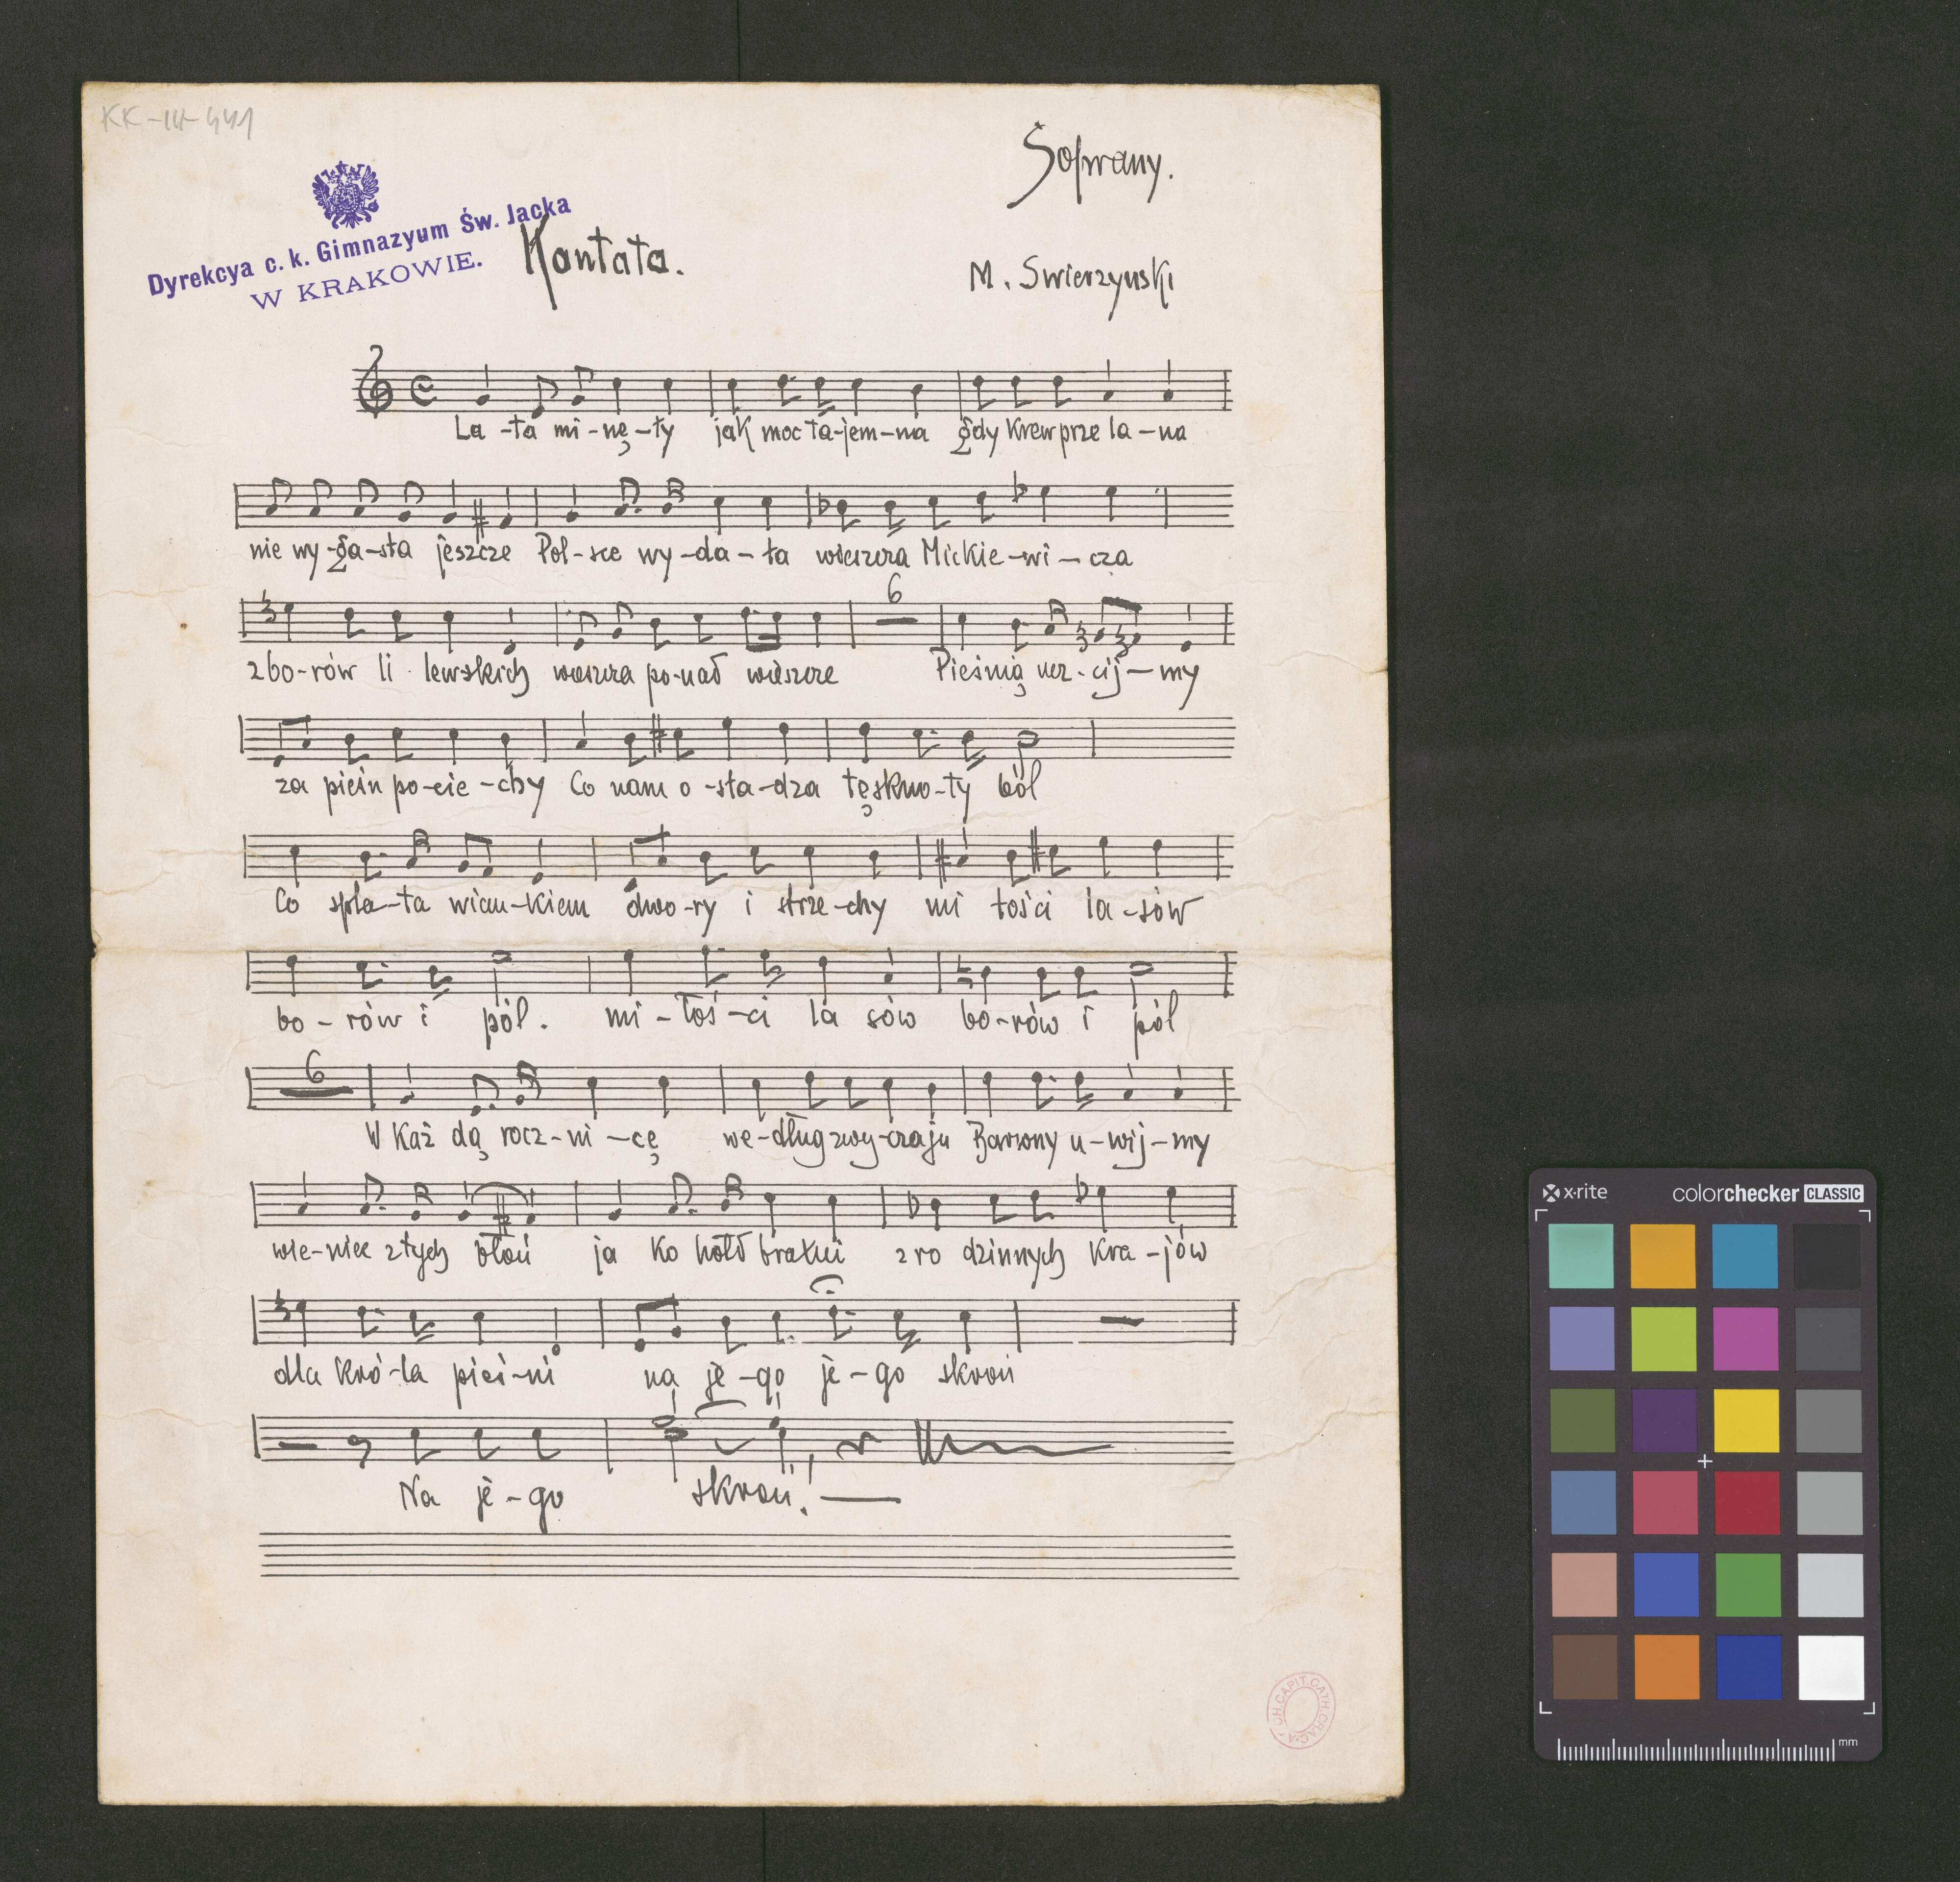 KK-III-441
Soprany.
Dyrekcya c. k. Gimnazyum Św. Jacka
W KRAKOWIE.
Kantata.
M. Swierzynski
La-ta mi-nę-ły jak moc ta-jem-na gdy krew prze la-na
nie wy-ga-sła jeszcze Pol-sce wy-da-ła wieszcza Mickie-wi-cza
6
z bo-rów li lewskich wieszcza po-nad wieszcze Pieśnią ucz-cij-my
za pieśń po-cie-chy Co nam o-sła-dza tęskno-ty ból
Co spla-ta wian-kiem dwo-ry i strze-chy mi łości la-sów
bo-rów i pól. mi-łoś-ci la sów bo-rów i pól
6
W każ dą rocz-ni-cę we-dług zwy-czaju Barwny u-wij-my
wie-niec z tych błoń ja ko hołd bratni z ro dzinnych kra-jów
dla kró-la pieś-ni na je-go je-go skroń
Na je-go skroń!
x-rite colorchecker CLASSIC
mm
CH.CAPIT.CATH.CRAC.